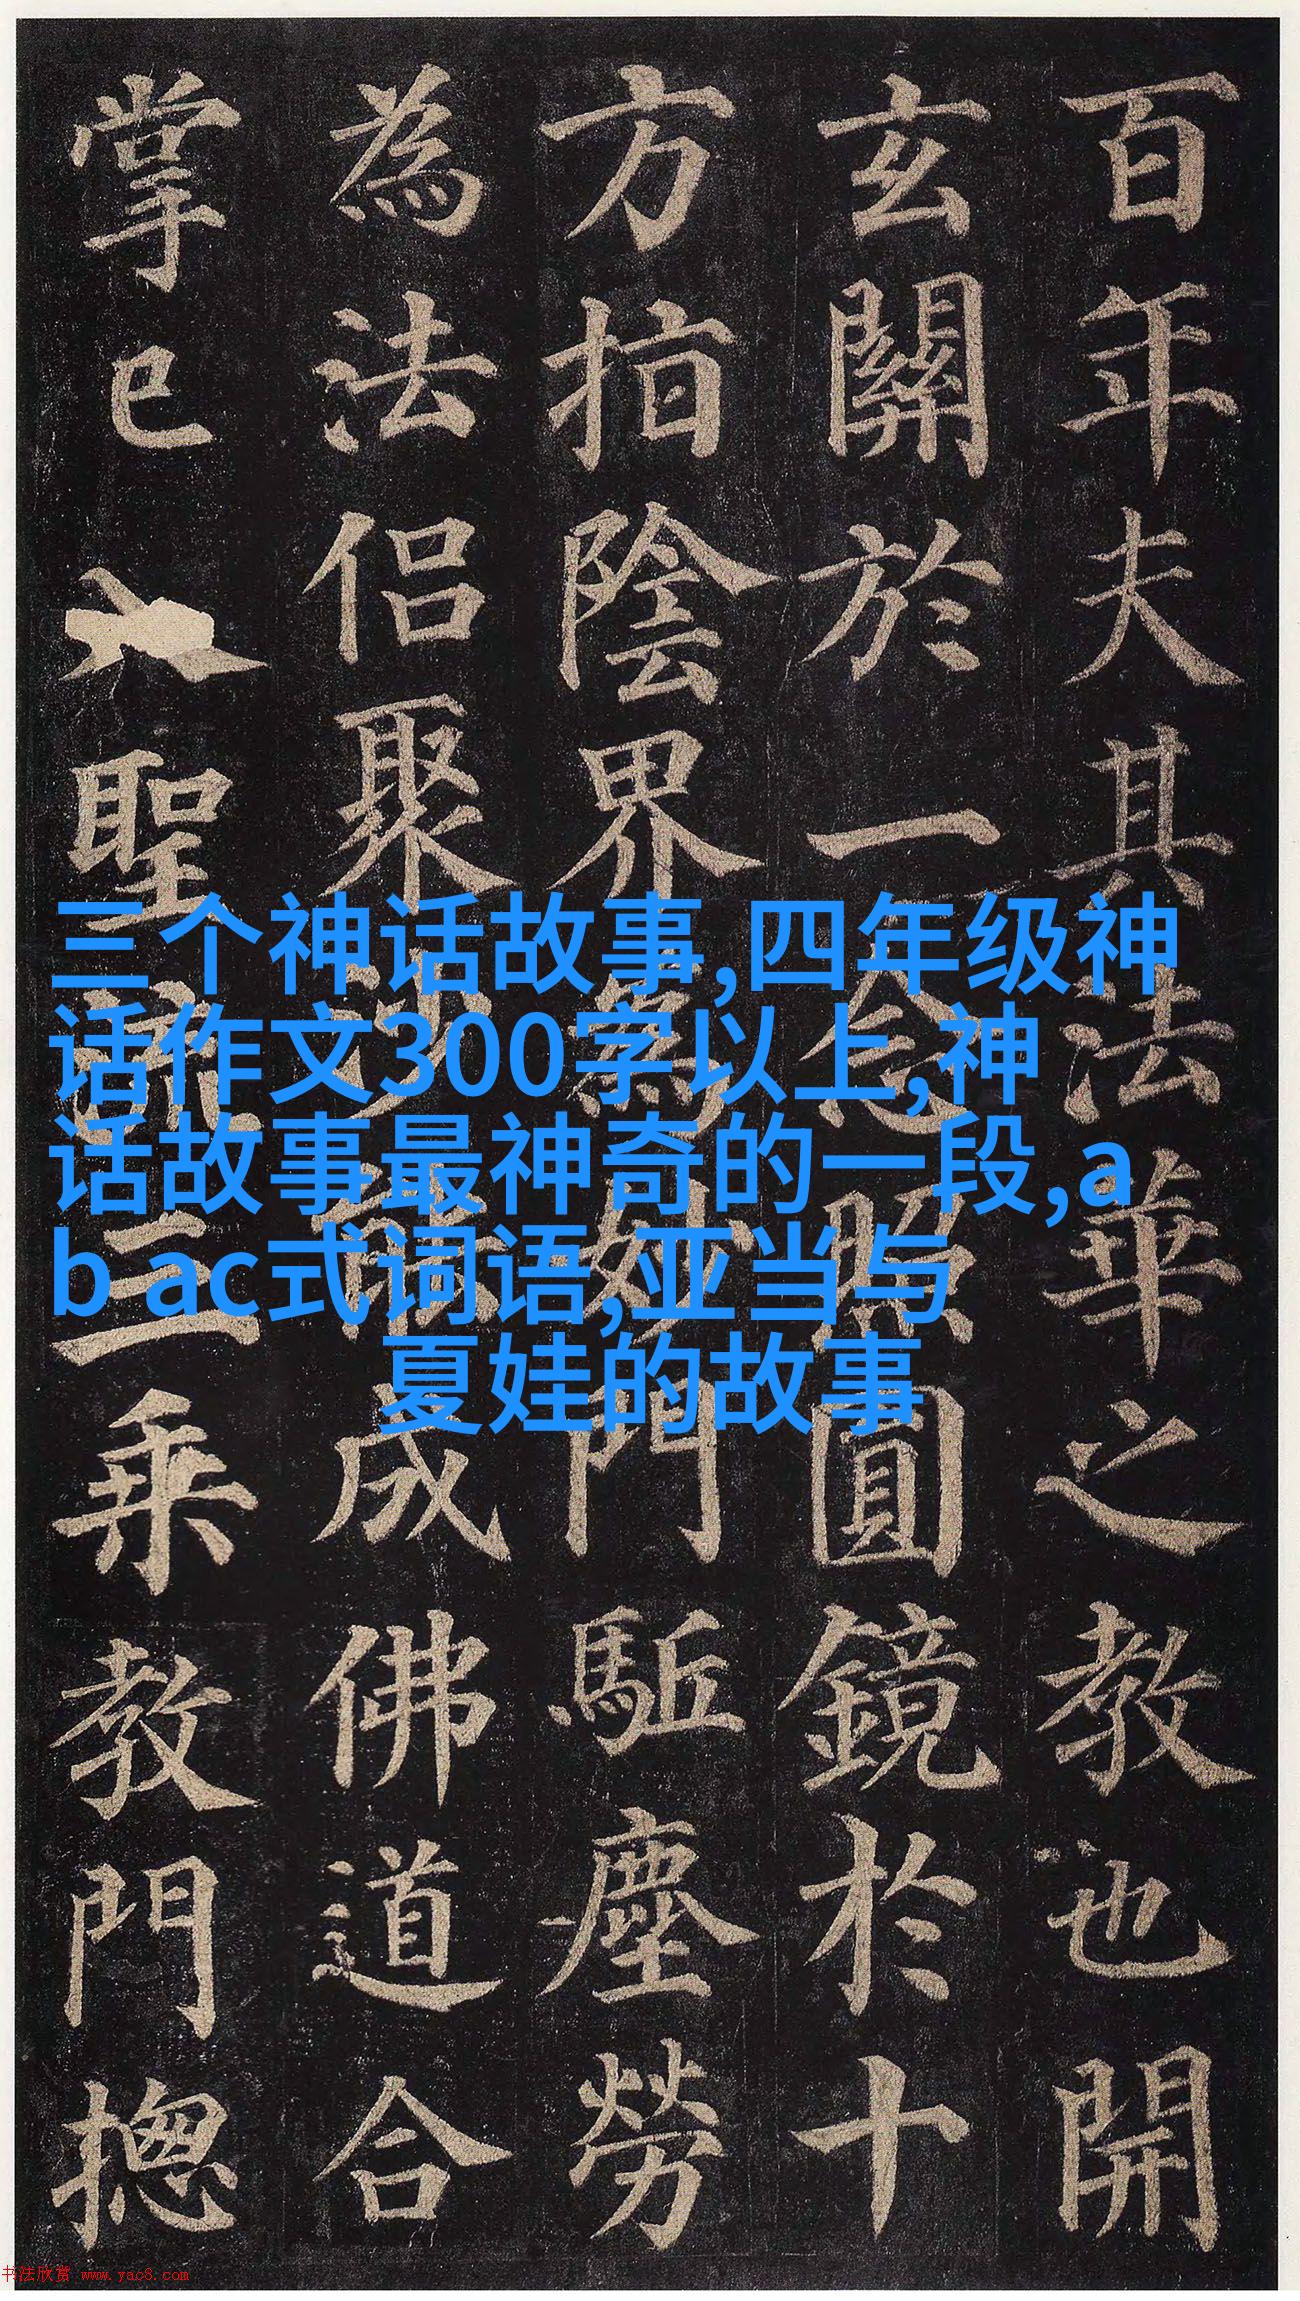 百年夫其法華之教也開
玄關於一念照圓鏡於十
方指陰界為妙門駈塵勞
為法侣聚沙能成佛道合
掌已聖三乘教門摠
三个神话故事,四年级神
话作文300字以上,神
话故事最神奇的一段,a
b ac式词语,亚当与
夏娃的故事
书法欣赏 www.yac8.com